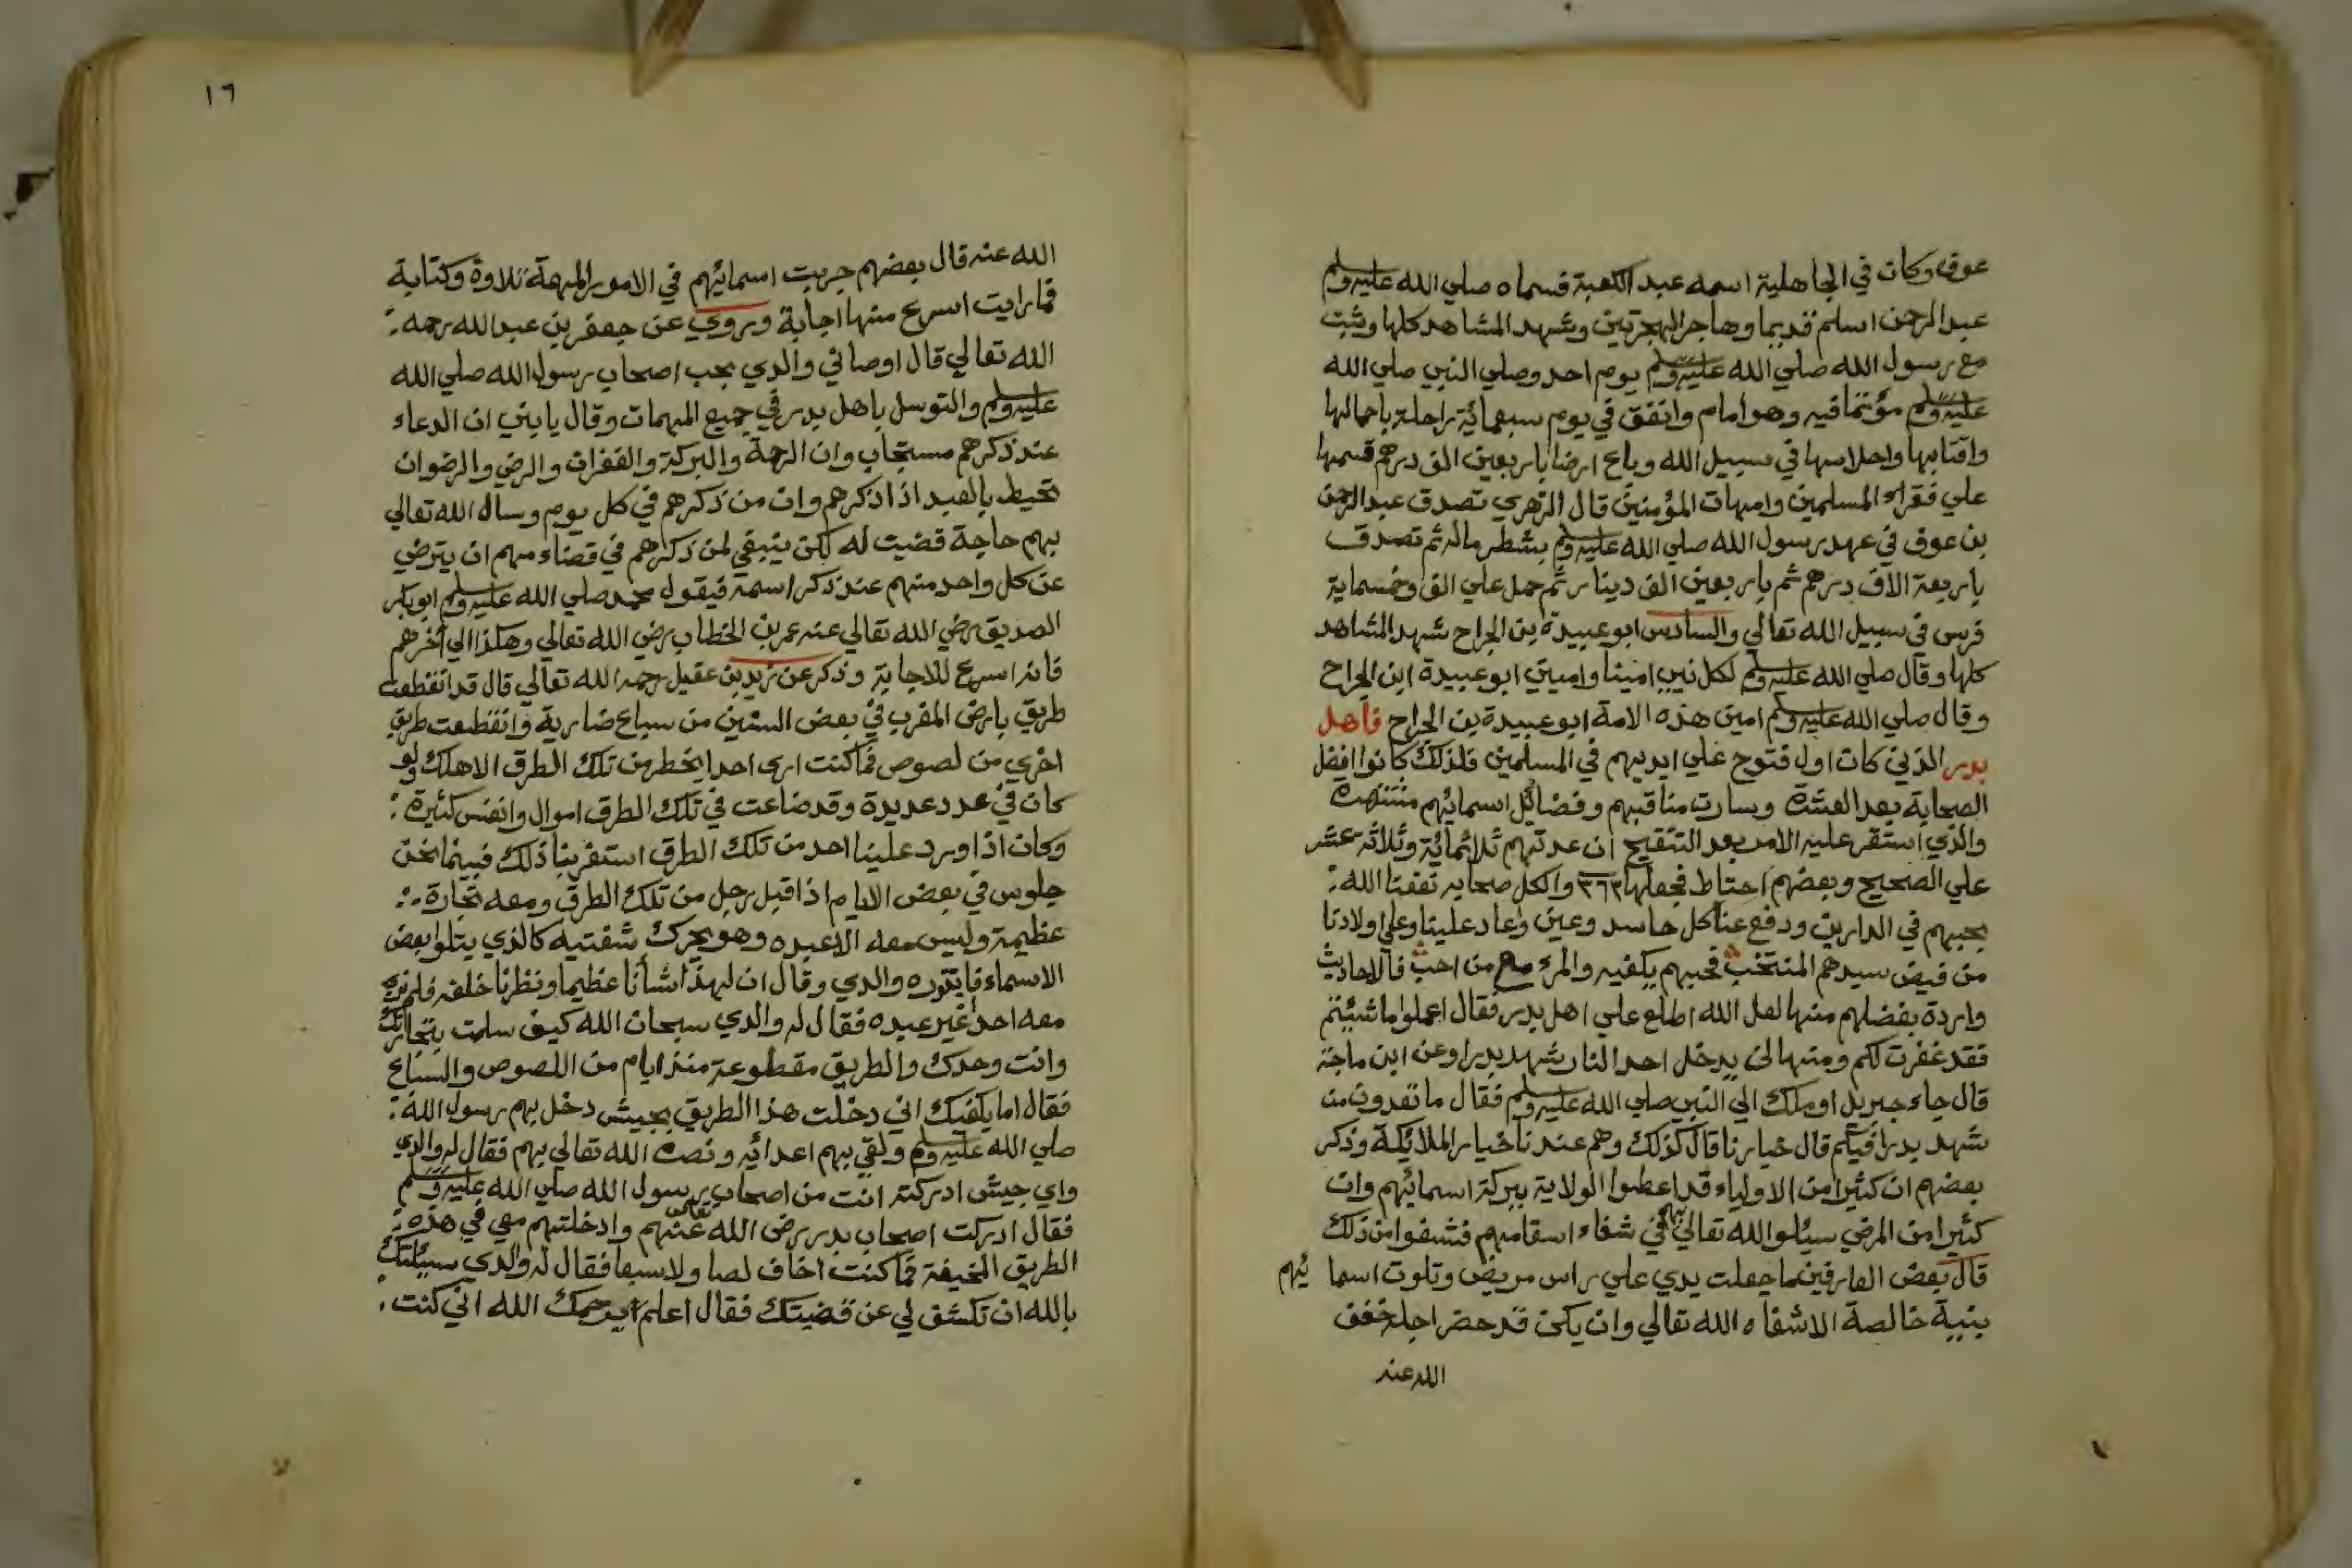 عوف وكان في الجاهلية اسمه عبد الكعبة فسماه صلي الله عليه وسلم
عبد الرحمن اسلم قديما وهاجر الهجرتين وشهد المشاهد كلها وثبت
مع رسول الله صلي الله عليه وسلم يوم احد وصلي النبي صلي الله
عليه وسلم مؤتما فيه وهو امام وانفق في يوم سبعمائة راحلة باحمالها
واقتابها واحلاسها في سبيل الله وباع ارضا باربعين الف درهم قسمها
علي فقراء المسلمين وامهات المؤمنين قال الزهري تصدق عبد الرحمن
بن عوف في عهد رسول الله صلي الله عليه وسلم بشطر ماله ثم تصدق
باربعة الاف درهم ثم باربعين الف دينار ثم حمل علي الف وخمسماية
فرس في سبيل الله تعالي والسادس ابو عبيدة بن الجراح شهد المشاهد
كلها وقال صلي الله عليه وسلم لكل نبي امينا واميني ابو عبيدة ابن الجراح
وقال صلي الله عليه وسلم امين هذه الامة ابو عبيدة بن الجراح فاهل
بدر الذين كان اول فتوح علي ايديهم في المسلمين فلذلك كانوا افضل
الصحابة بعد العشرة وسارت مناقبهم وفضائل اسمائهم منتشرة
والذي استقر عليه الامر بعد التنقيح ان عدتهم ثلاثمائة وثلاثة عشر
علي الصحيح وبعضهم احتاط فجعلها ٣٦٣ والكل صحابه نفعنا الله
بحبهم في الدارين ودفع عنا كل حاسد وعين وعاد علينا وعلي اولادنا
من فيض سيدهم المنتخب فحبهم يكفيه والمرء مع من احب فالاحاديث
واردة بفضلهم منها لعل الله اطلع علي اهل بدر فقال اعملوا ما شئتم
فقد غفرت لكم ومنها لن يدخل احد النار شهد بدرا وعن ابن ماجة
قال جاء جبريل او ملك الي النبي صلي الله عليه وسلم فقال ما تعدون من
شهد بدرا فيكم قال خيارنا قال كذلك وهم عندنا خيار الملائكة وذكر
بعضهم ان كثيرا من الاولياء قد اعطوا الولاية ببركة اسمائهم وان
كثيرا من المرضي سئلوا الله تعالي بهم في شفاء اسقامهم فشفوا من ذلك
قال بعض العارفين ما جعلت يدي علي راس مريض وتلوت اسما ئهم
بنية خالصة الا شفاه الله تعالي وان يكن قد حضر اجله خفف
الله عنه
١٦
الله عنه قال بعضهم جربت اسمائهم في الامور المهمة تلاوة وكتابة
فما رايت اسرع منها اجابة وروي عن جعفر بن عبد الله رحمه
الله تعالي قال اوصاني والدي بحب اصحاب رسول الله صلي الله
عليه وسلم والتوسل باهل بدر في جميع المهمات وقال يا بني ان الدعاء
عند ذكرهم مستجاب وان الرحمة والبركة والغفران والرضي والرضوان
تحيط بالعبد اذا ذكرهم وان من ذكرهم في كل يوم وسال الله تعالي
بهم حاجة قضيت له لكن ينبغي لمن ذكرهم في قضاء مهم ان يترضي
عن كل واحد منهم عند ذكر اسمه فيقول محمد صلي الله عليه وسلم ابو بكر
الصديق رضي الله تعالي عنه عمر بن الخطاب رضي الله تعالي وهكذا الي آخرهم
فانه اسرع للاجابة وذكر عن زيد بن عقيل رحمه الله تعالي قال قد انقطعت
طريق بارض المغرب في بعض السنين من سباع ضارية وانقطعت طريق
اخري من لصوص فما كنت اري احدا يخطر من تلك الطرق الا هلك ولو
كان في عدد عديدة وقد ضاعت في تلك الطرق اموال وانفس كثيرة
وكان اذا ورد علينا احد من تلك الطرق استغربنا ذلك فبينما نحن
جلوس في بعض الايام اذ اقبل رجل من تلك الطرق ومعه تجارة
عظيمة وليس معه الا عبده وهو يحرك شفتيه كالذي يتلو بعض
الاسماء والدي وقال ان لهذا شأنا عظيما ونظرنا خلفه فلم نر
معه احدا غير عبده فقال له والدي سبحان الله كيف سلمت بتجارتك
وانت وحدك والطريق مقطوعة منذ ايام من اللصوص والسباع
فقال اما يكفيك اني دخلت هذا الطريق بجيش دخل بهم رسول الله
صلي الله عليه وسلم ولقي بهم اعدائه ونصره الله تعالي بهم فقال له والدي
واي جيش ادركته انت من اصحاب رسول الله صلي الله عليه وسلم
فقال ادركت اصحاب بدر رضي الله تعالي عنهم وادخلتهم معي في هذه
الطريق المخيفة فما كنت اخاف لصا ولا سبعا فقال له والدي سئلتك
بالله ان تكشف لي عن قضيتك فقال اعلم يرحمك الله اني كنت